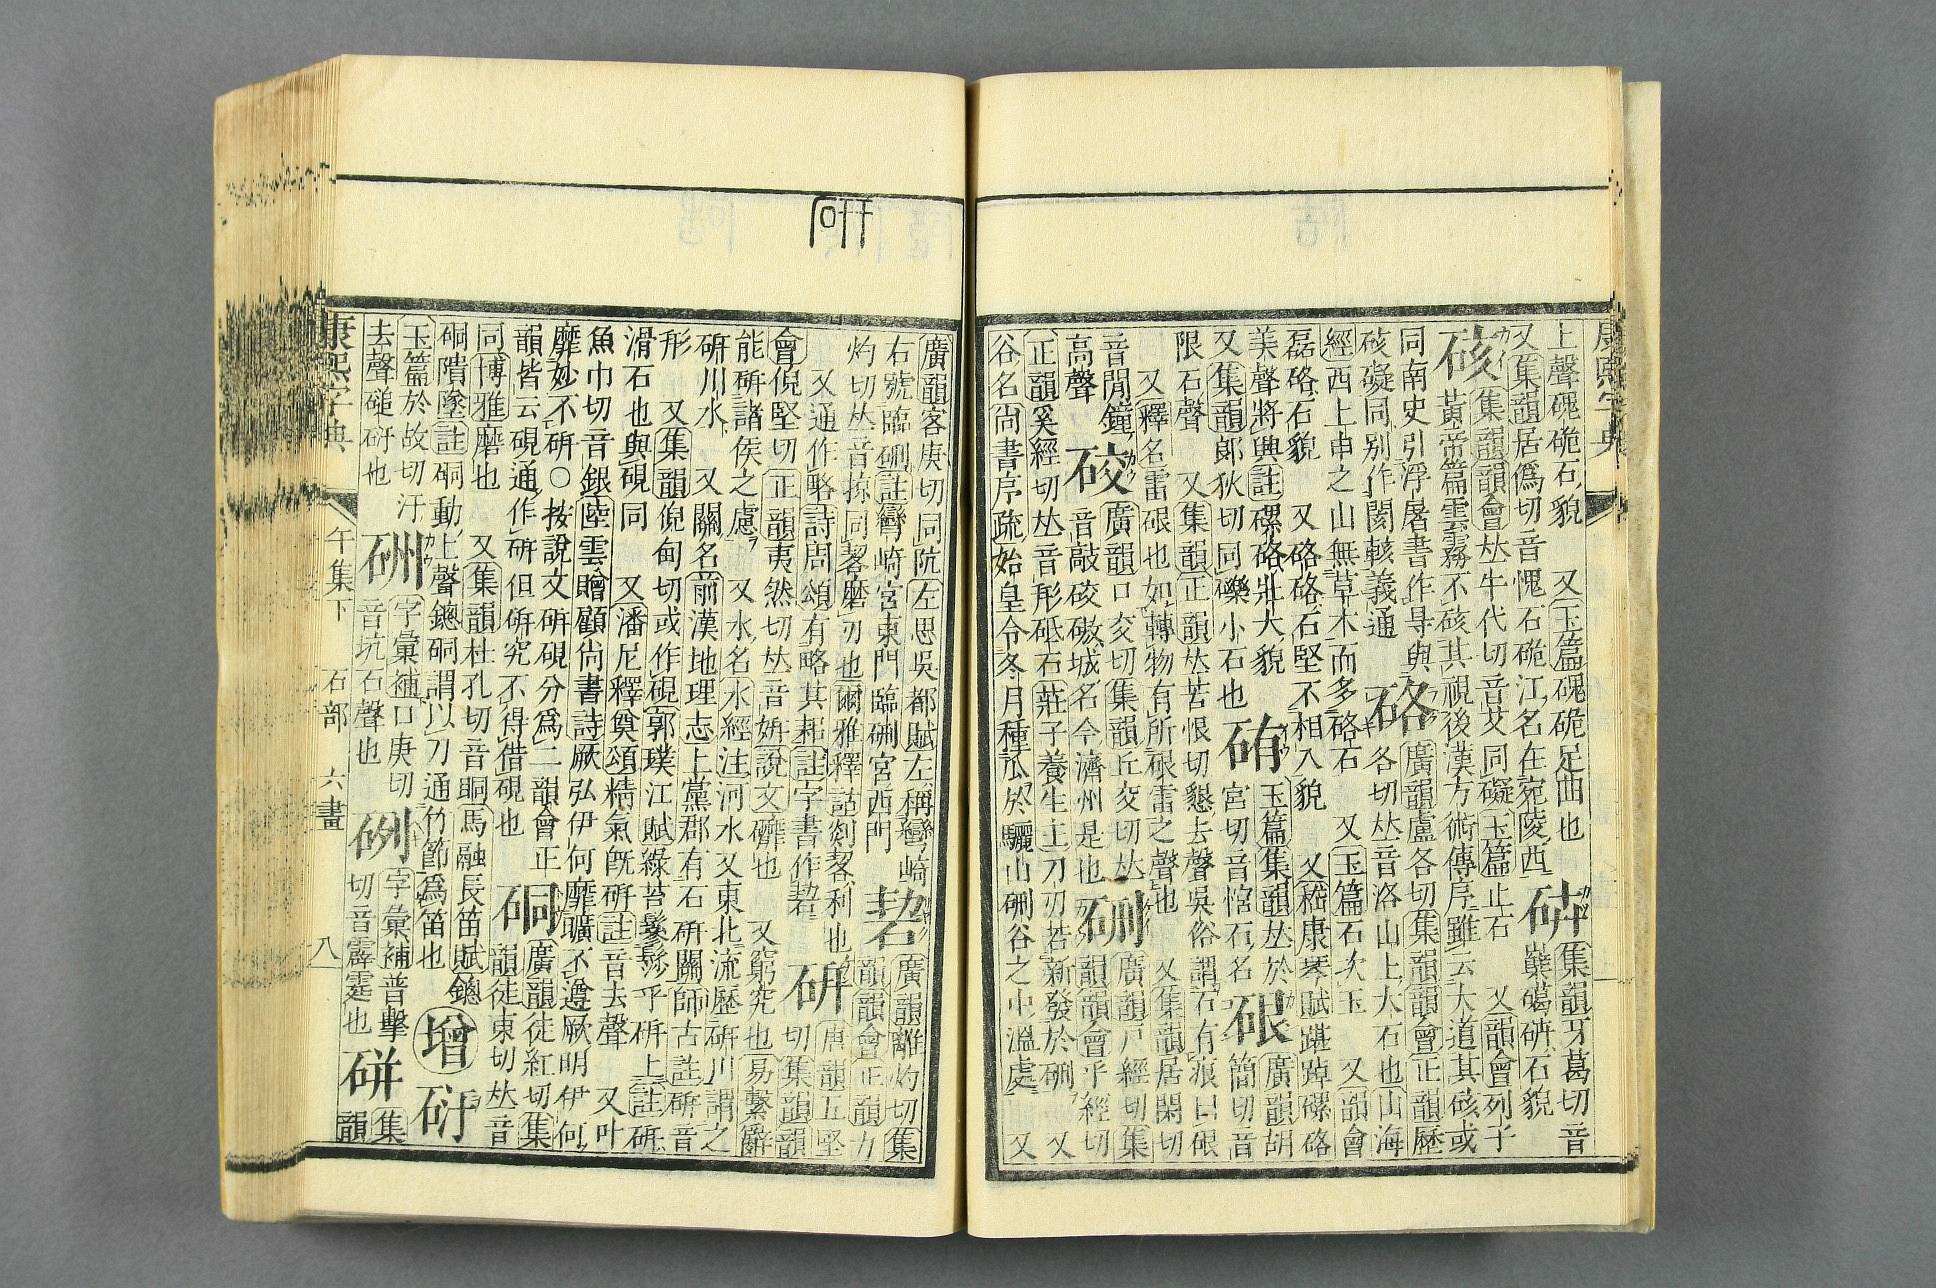 康熙字典
上聲磈硊石貌 又玉篇磈硊足曲也
又集韻居僞切音愧石硊江名在宛陵西
集韻牙葛切音
巀㠔硞石貌
硋 集韻韻會𠀤牛代切音艾同礙玉篇止石 又韻會列子
黃帝篇雲霧不硋其視後漢方術傳序雖云大道其硋或
同南史引浮屠書作㝵與
硋礙同別作閡輆義通
硌 廣韻盧各切集韻韻會正韻歷
各切𠀤音洛山上大石也山海
經西上申之山無草木而多硌石 又玉篇石次玉 又韻會
磊硌石貌 又硌硌石堅不相入貌 又嵇康琴賦踸踔磥硌
美聲將興註磥硌壯大貌
又集韻郞狄切同礫小石也
硧 玉篇集韻𠀤於
宮切音愹石名
硍 廣韻胡
簡切音
限石聲 又集韻正韻𠀤苦恨切懇去聲吳俗謂石有痕曰硍
又釋名雷硍也如轉物有所硍雷之聲也 又集韻居閑切
音閒鐘
高聲
硣 廣韻口交切集韻丘交切𠀤
音敲硣磝城名今濟州是也
硎 廣韻戸經切集
韻韻會乎經切
正韻奚經切𠀤音形砥石莊子養生主刀刃若新發於硎 又
谷名尚書序疏始皇令冬月種瓜於驪山硎谷之中溫處 又
硏
廣韻客庚切同阬左思吳都賦左稱彎崎
右號臨硎註彎崎宮東門臨硎宮西門
硩 廣韻離灼切集
韻韻會正韻力
灼切𠀤音掠同䂮磨刃也爾雅釋詁剡䂮利也
又通作略詩周頌有略其耜註字書作䂮
硏 唐韻五堅
切集韻韻
會倪堅切正韻夷然切𠀤音姸說文䃺也 又窮究也易繫辭
能硏諸侯之慮 又水名水經注河水又東北流歷硏川謂之
硏川水 又關名前漢地理志上黨郡有石硏關師古註硏音
形 又集韻倪甸切或作硯郭璞江賦綠苔鬖髿乎硏上註硏
滑石也與硯同 又潘尼釋奠頌精氣旣硏註音去聲 又叶
魚巾切音銀陸雲贈顧尙書詩厥弘伊何靡曠不遵厥明伊何
靡妙不硏○按說文硏硯分爲二韻會正
韻皆云硯通作硏但硏究不得借硯也
硐 廣韻徒紅切集
韻徒東切𠀤音
同博雅磨也 又集韻杜孔切音眮馬融長笛賦鏓
硐隤墜註硐動上聲鏓硐謂以刀通竹節爲笛也
增
玉篇於故切汙
去聲磓𥐻也
硎 字彙補口庚切
音坑石聲也
字彙補普擊
切音霹霆也
硑 集
韻
康熙字典 午集下 石部 六畫 八